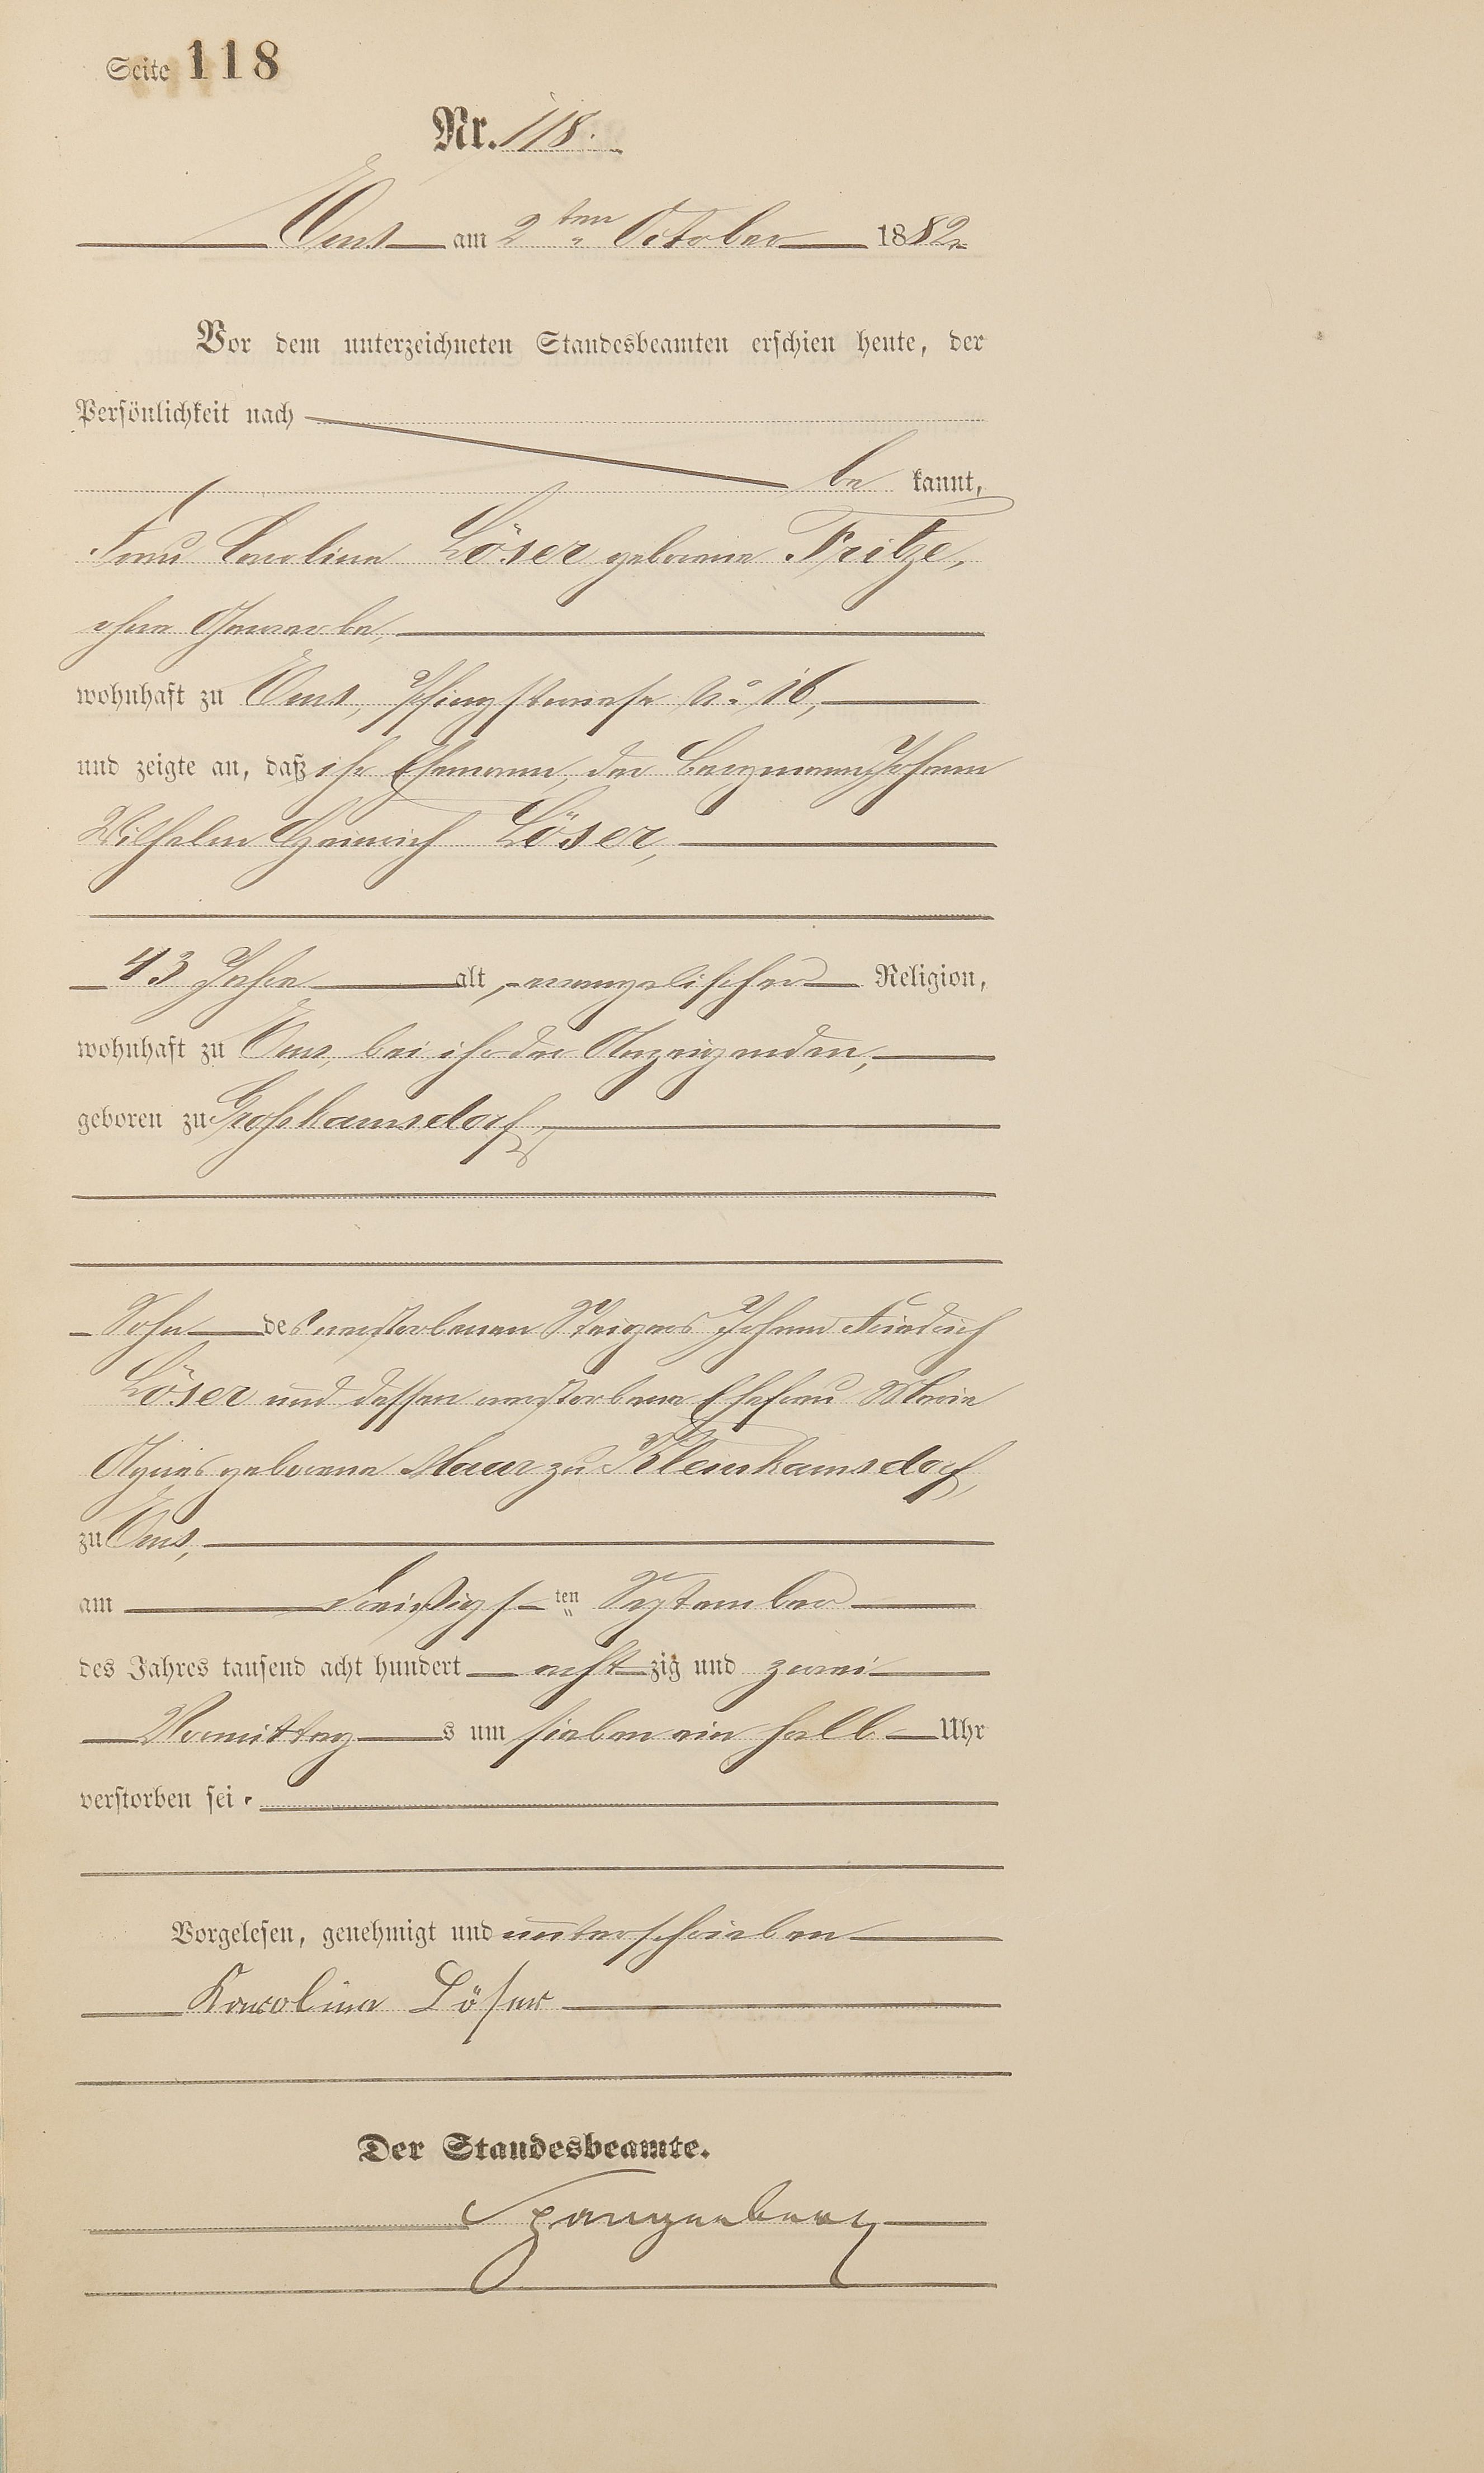 Seite 118
Nr. 118.
Ems am 2ten October 1882
Vor dem unterzeichneten Standesbeamten erschien heute, der
Persönlichkeit nach
be kannt,
Frau Caroline Löser geborene Fritze,
ohne Gewerbe,
wohnhaft zu Ems, Pfingstwiese No 16,
und zeigte an, daß ihr Ehemann, der Bergmann Johann
Wilhelm Heinrich Löser,
43 Jahre alt, evangelischer Religion,
wohnhaft zu Ems, bei ihr der Anzeigenden,
geboren zu Großkamsdorf,
Sohn des verstorbenen Steigers Johann Friedrich
Löser und dessen verstorbene Ehefrau Marie
Agnes geborene Maar zu Kleinkamsdorf,
zu Ems,
am dreißigsten September
des Jahres tausend acht hundert acht zig und zwei
Vormittags um sieben ein halb Uhr
verstorben sei.
Vorgelesen, genehmigt und unterschrieben
Karoline Löser
Der Standesbeamte.
Spangenberg